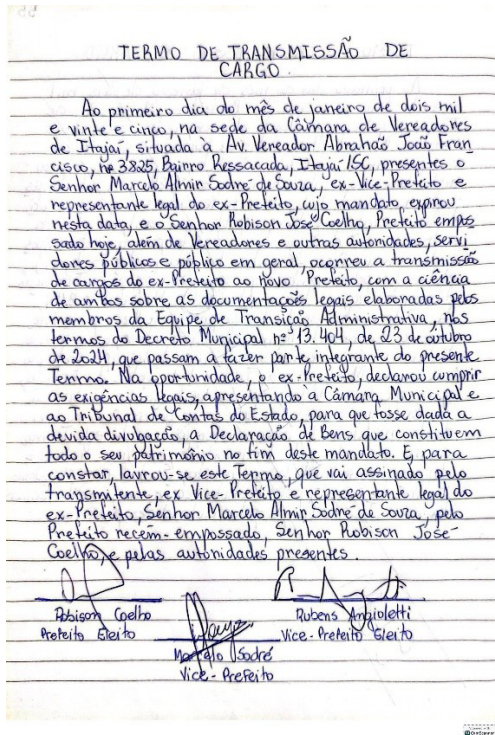 TERMO DE TRANSMISSÃO DE
CARGO.
Ao primeiro dia do mês de janeiro de dois mil
e vinte e cinco, na sede da Câmara de Vereadores
de Itajaí, situada à Av. Vereador Abrahão João Fran
cisco, nº 3825, Bairro Ressacada, Itajaí/SC, presentes o
Senhor Marcelo Almir Sodré de Souza, ex-Vice-Prefeito e
representante legal do ex-Prefeito, cujo mandato, expirou
nesta data, e o Senhor Robison José Coelho, Prefeito empos
sado hoje, além de Vereadores e outras autoridades, servi
dores públicos e público em geral, ocorreu a transmissão
de cargos do ex-Prefeito ao novo Prefeito, com a ciência
de ambos sobre as documentações legais elaboradas pelos
membros da Equipe de Transição Administrativa, nos
termos do Decreto Municipal nº 13.404, de 23 de outubro
de 2024, que passam a fazer parte integrante do presente
Termo. Na oportunidade, o ex-Prefeito, declarou cumprir
as exigências legais, apresentando à Câmara Municipal e
ao Tribunal de Contas do Estado, para que fosse dada a
devida divulgação, a Declaração de Bens que constituem
todo o seu patrimônio no fim deste mandato. E, para
constar, lavrou-se este Termo, que vai assinado pelo
transmitente, ex Vice-Prefeito e representante legal do
ex-Prefeito, Senhor Marcelo Almir Sodré de Souza, pelo
Prefeito recém-empossado, Senhor Robison José
Coelho, e pelas autoridades presentes.
Robison Coelho
Prefeito Eleito
Rubens Angioletti
Vice-Prefeito Eleito
Marcelo Sodré
Vice-Prefeito
CamScanner